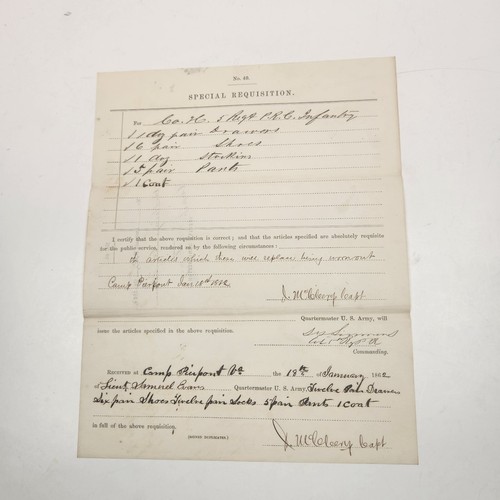 No. 40.
SPECIAL REQUISITION.
For Co. H. 5 Regt P.R.C. Infantry
1 doz pair drawors
6 pair Shoes
1 doz Stockins
5 pair Pants
1 Coat
I certify that the above requisition is correct; and that the articles specified are absolutely requisite
for the public service, rendered so by the following circumstances:
articles which these will replace being worn out
Camp Parpont Jan 18th 1862
J. McCleery Capt
Quartermaster U. S. Army, will
issue the articles specified in the above requisition.
Commanding.
RECEIVED at Camp Pierpont Va the 18th of January 1862
of Lieut. Samuel Evans Quartermaster U. S. Army, Twelve Pair Drawers
Six pair Shoes Twelve pair Socks 5 pair Pants 1 Coat
in full of the above requisition.
(SIGNED DUPLICATES.)
J. McCleery Capt